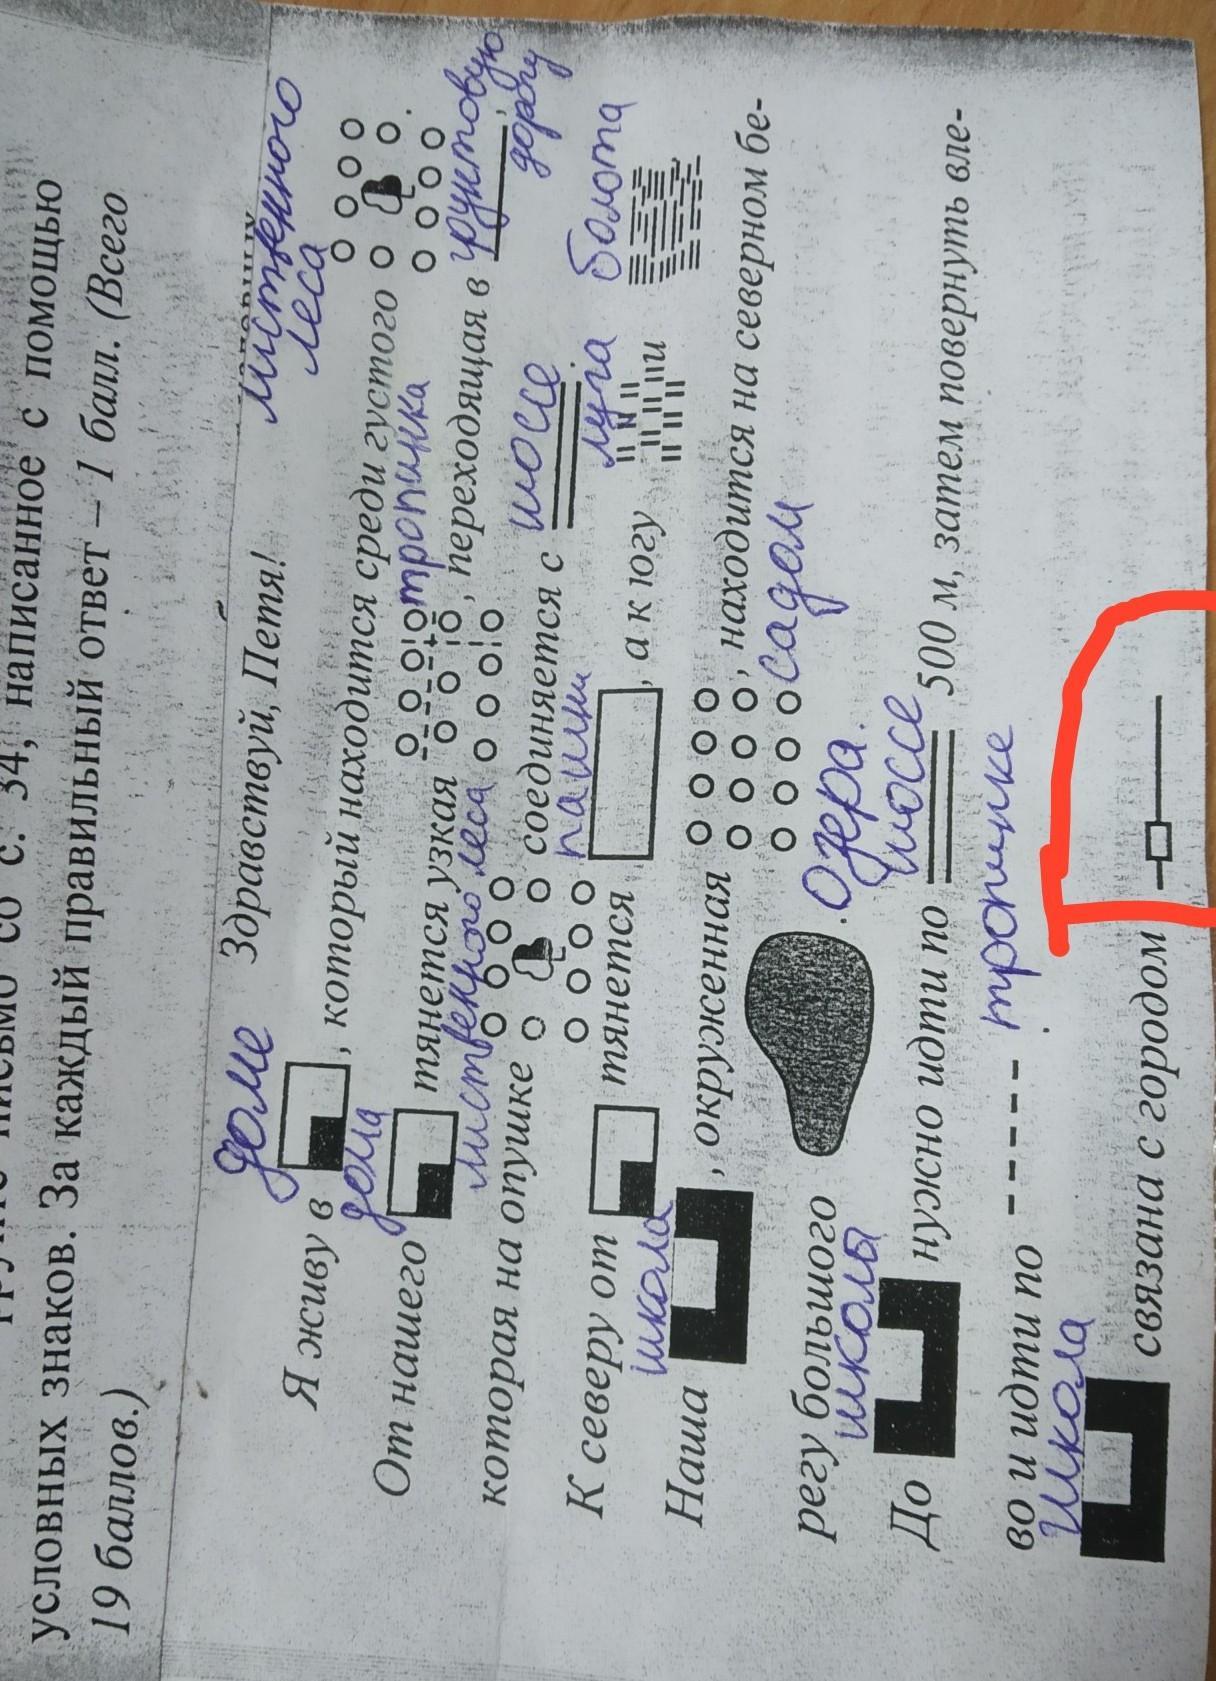 условных знаков. За каждый правильный ответ – 1 балл. (Всего
19 баллов.)
лиственного
леса
Здравствуй, Петя!
доме
Я живу в , который находится среди густого .
дома тропинка грунтовую
От нашего тянется узкая , переходящая в ,
дорогу
лиственного леса шоссе
которая на опушке соединяется с
пашни луга болота
К северу от тянется , а к югу и
школа
Наша , окруженная , находится на северном бе-
садом
регу большого . озера.
школы шоссе
До нужно идти по 500 м, затем повернуть вле-
во и идти по . тропинке
Школа
связана с городом